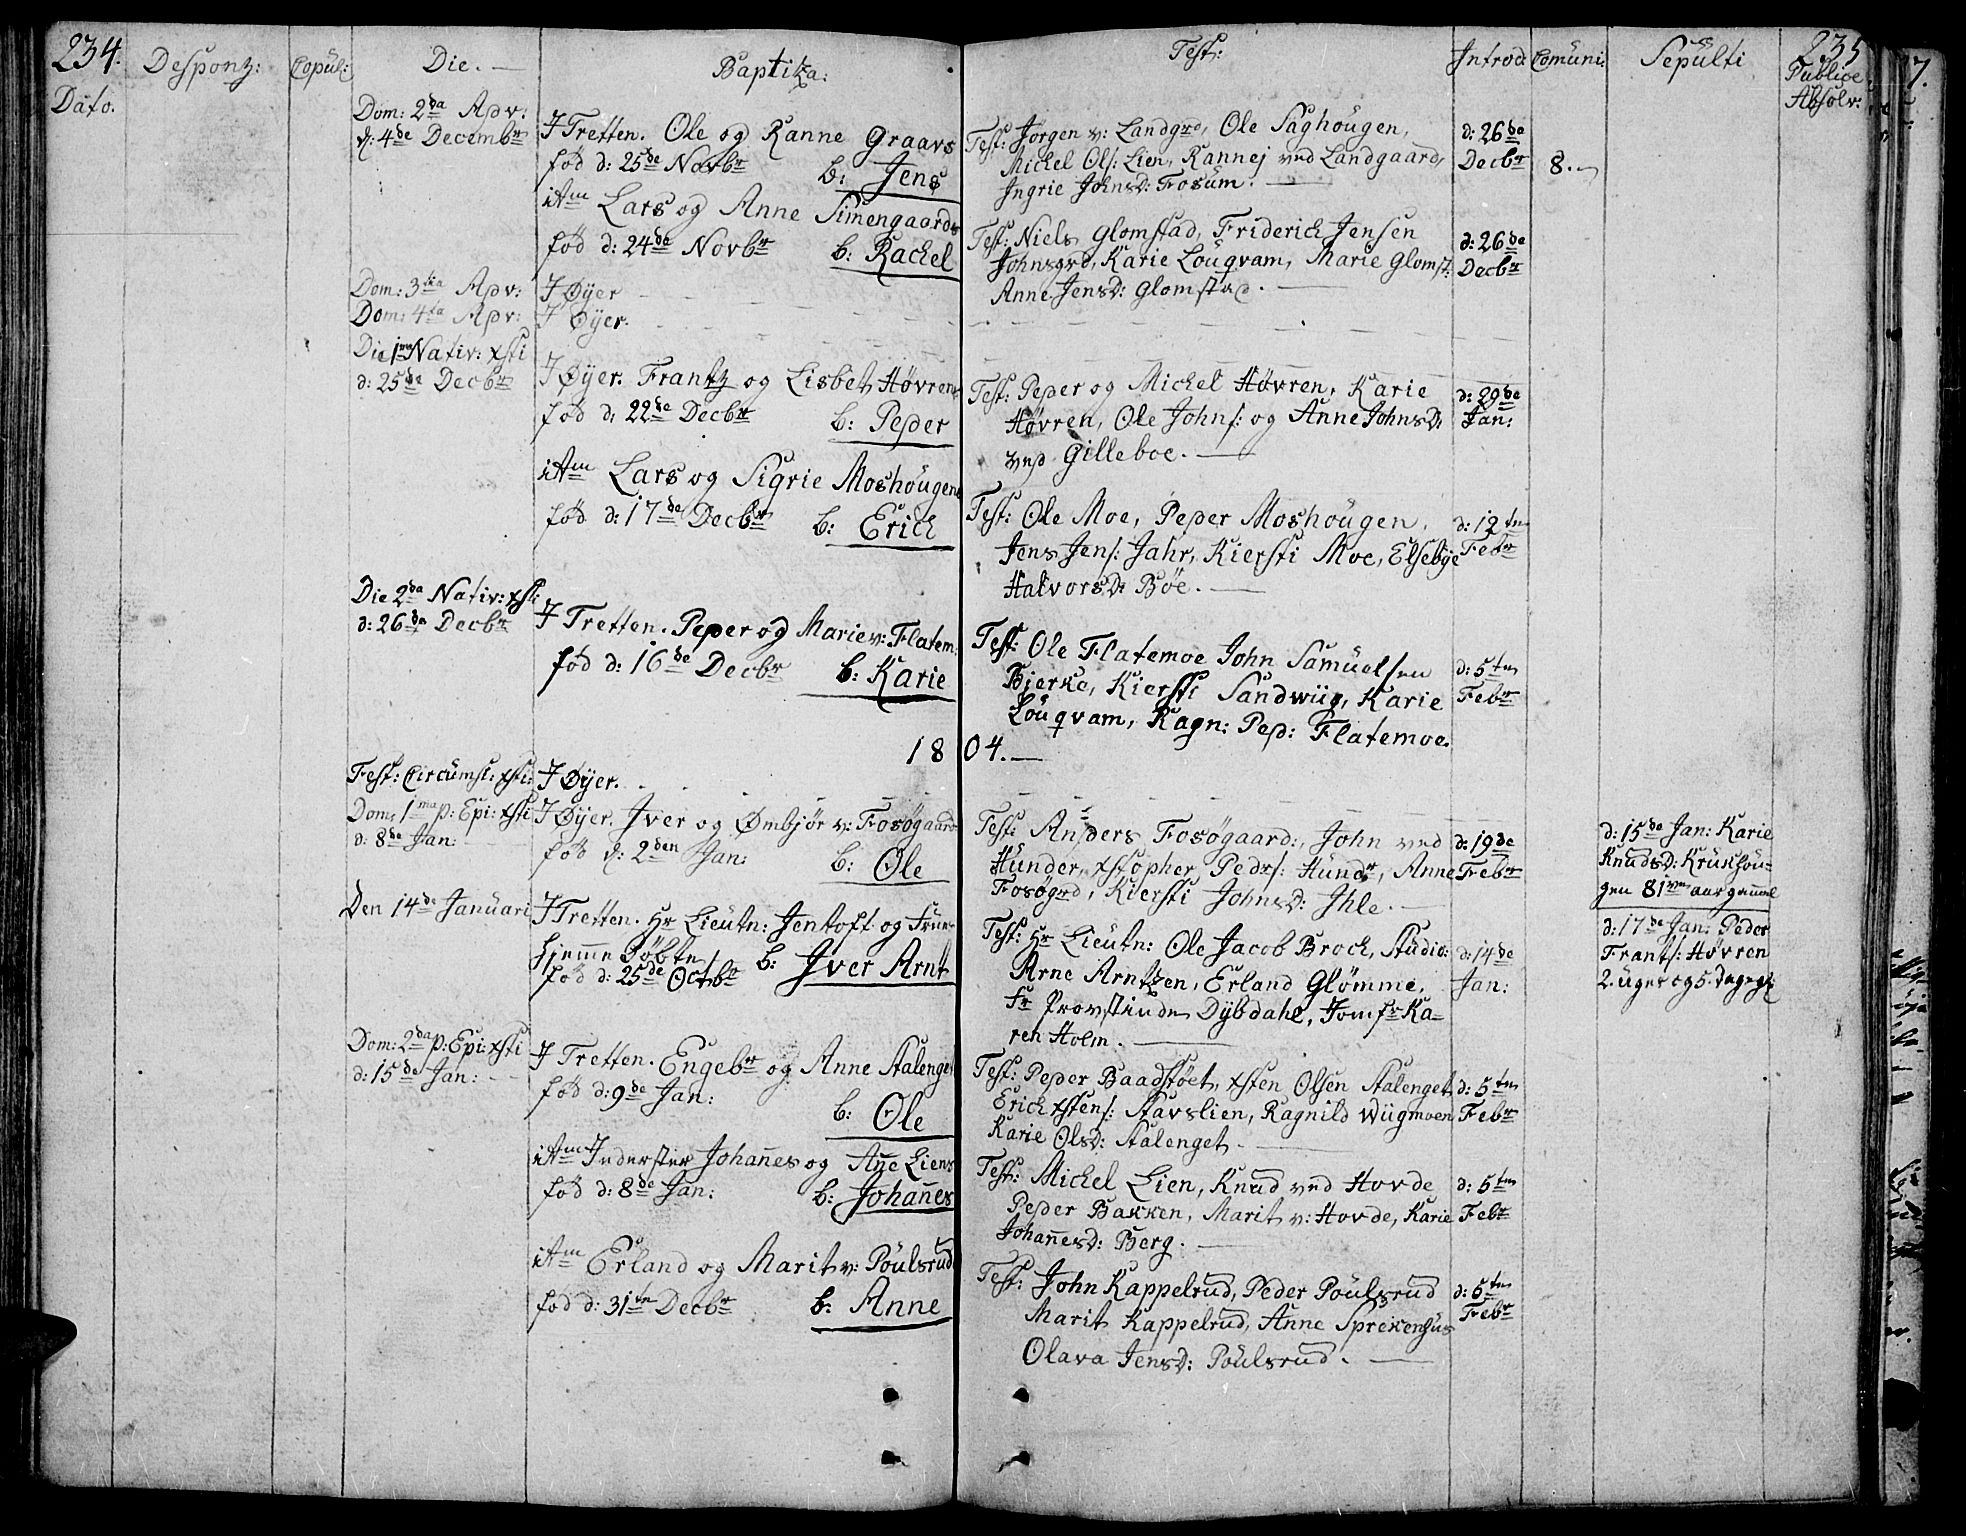 234.
Dato.
Desponz:
Copul:
Die.
Baptiza:
Dom: 2da Adv:
d: 4de Decembr
I Tretten. Ole og Ranne Graavs
fød d: 25de Novbr b: Jens
itm Lars og Anne Simengaards
fød d: 24de Novbr b: Rachel
Dom: 3tia Adv: I Øyer
Dom: 4ta Adv: I Øyer.
Die 1ma Nativ: xsti
d: 25de Decbr
I Øyer. Frantz og Lisbet Høvrens
fød d: 22de Decbr b: Peder
itm Lars og Sigrie Moshougens
fød d: 17de Decbr b: Erich
Die 2da Nativ: xsti
d: 26de Decbr
I Tretten. Peder og Marie v: Flatem:
fød d: 16de Decbr b: Karie
1804.
Fest: Circumsc: xsti: I Øyer.
Dom: 1ma p: Epi: xsti
d: 8de Jan:
I Øyer. Iver og Ømbjør v: Fosøgaard
fød d: 2den Jan: b: Ole
Den 14de Januari
I Tretten. Hr Lieutn: Jentoft og Frue
hjemme døbte,
fød d: 25de Octbr b: Iver Arnt
Dom: 2da p: Epi: xsti
d: 15de Jan:
I Tretten. Engebr og Anne Stalenget
fød d: 9de Jan:
b: Ole
itm Inderster Johanes og Ane Liens
fød d: 8de Jan: b: Johanes
itm Erland og Marit v: Poulsrud
fød d: 31te Decbr b: Anne
Test:
Introd:
Comuni:
Sepulti
235
Publice
Absolv:
Test: Jorgen v: Landgrd, Ole Saghougen,
Michel Ols: Lien, Rannej ved Landgaard,
Ingrie Johnsd: Fosum.
d: 26de
Decbr
8.
Test: Niels Glomstad, Friderich Jensen
Johnsgrd, Karie Louqvam, Marie Glomst:
Anne Jensd: Glomstad.
d: 26de
Decbr
Test: Peder og Michel Høvren, Karie
Høvren, Ole Johns: og Anne Johnsd:
ved Gilleboe.
d: 29de
Jan:
Test: Ole Moe, Peder Moshougen,
Jens Jens: Jahr, Kiersti Moe, Elsebye
Halvorsd: Böe.
d: 12tn
Febr
Test: Ole Flatemoe John Samuelsen
Bjerke, Kiersti Sandwiig, Karie
Louqvam, Ragn: Ped: Flatemoe.
d: 5tn
Febr
Test: Anders Fosøgaard, John ved
Hunder, xstopher Pedrs: Hundr, Anne
Fosøgrd, Kiersti Johnsd: Ihle.
d: 19de
Febr
Test: Hr Lieutn: Ole Jacob Broch, Studio:
Arne Arntzen, Erland Glømme,
Fr Provstinde Dybdahl, Jomfr Ka-
ren Holm.
d: 14de
Jan:
Test: Peder Baadstöet, xsten Olsen Stalenget
Erich xstens: Stavslien, Ragnild Wiigmoen
Karie Olsd: Stalenget.
d: 5tn
Febr
Test: Michel Lien, Knud ved Hovde
Peder Bakken, Marit v: Hovde, Karie
Johanesd: Berg.
d: 5tn
Febr
Test: John Kappelrud, Peder Poulsrud
Marit Kappelrud, Anne Sprekenhus
Olava Jensd: Poulsrud.
d: 5tn
Febr
d: 15de Jan: Karie
Knudsd: Krukhou-
gen 81 aar gamel
d: 17de Jan: Peder
Frants: Høvren
2. uger og 5. dage gl: